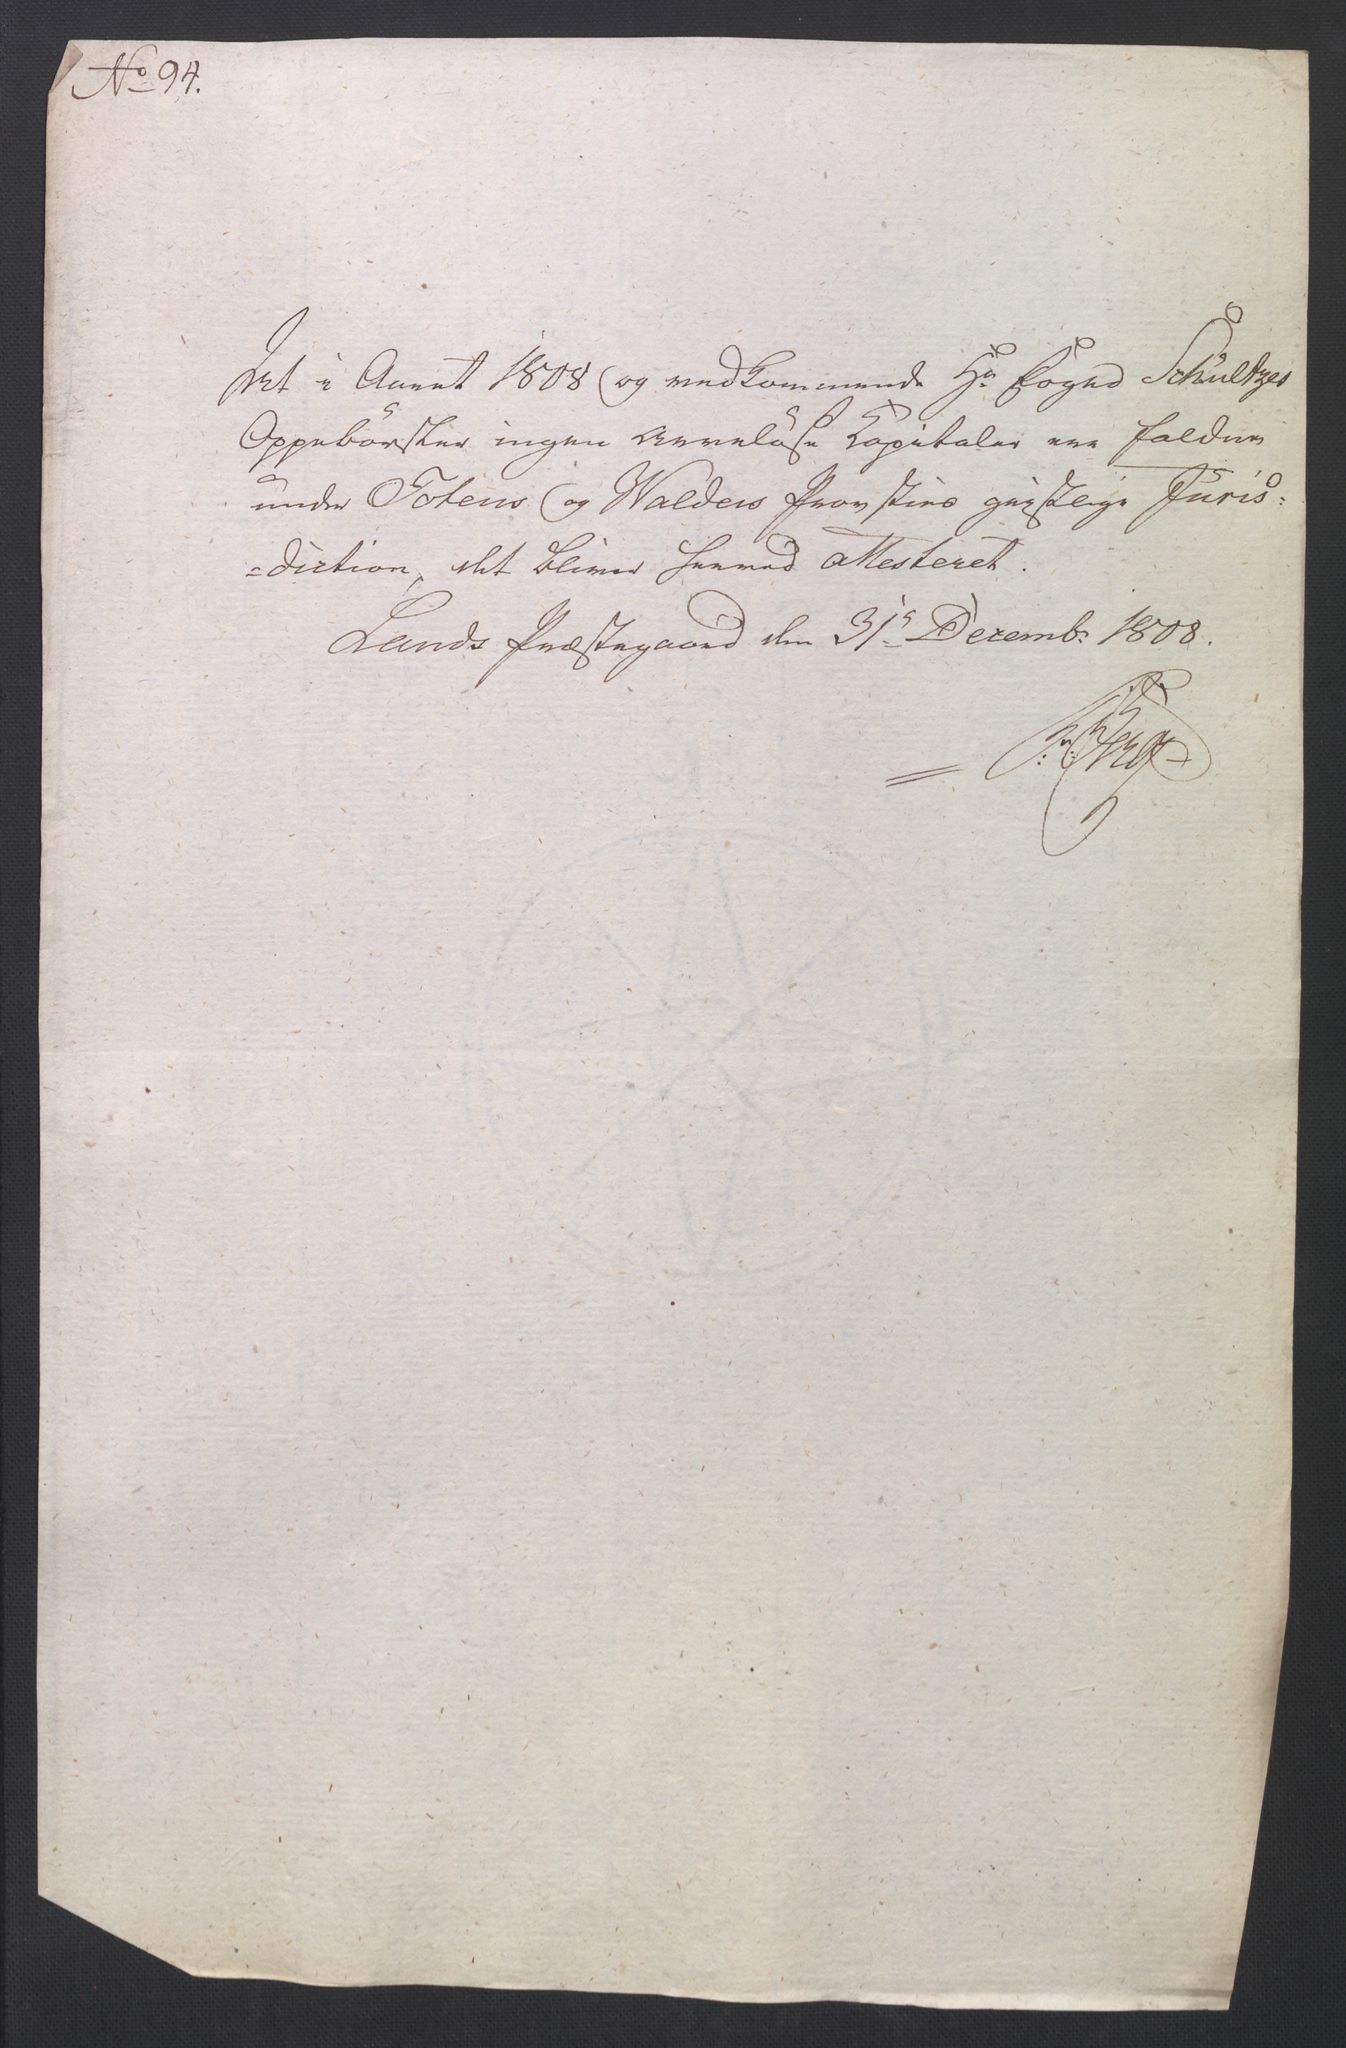 No 94.
At i Aaret 1808 og vedkommende Hr Foged Schultzes
Oppebörsler ingen arvelöse Capitaler ere faldne
under Totens og Walders Provsties geistlige Juris-
-diction, det bliver herved Attesteret.
Lands Præstegaard den 31te Decembr 1808.
Berg